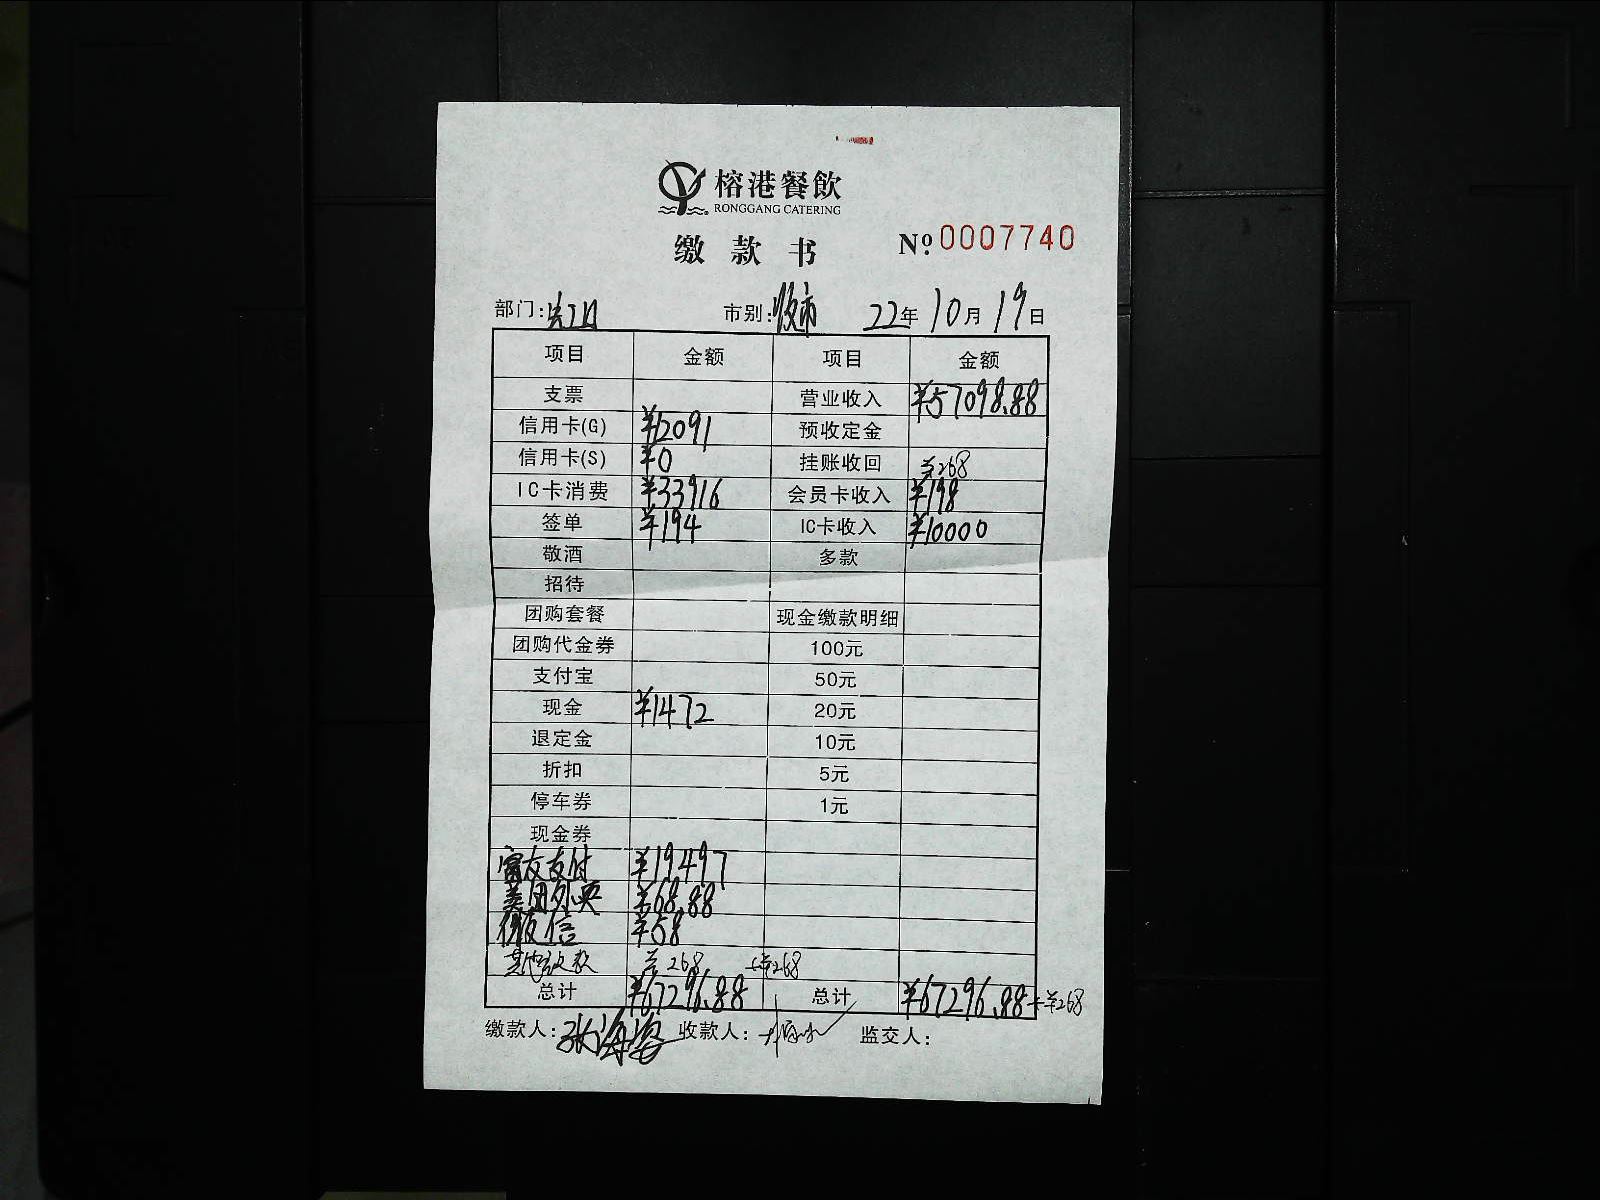 榕港餐飲
RONGGANG CATERING
缴款书 №0007740
部门: 市别: 夜市 22年10月19日
项目 金额 项目 金额
支票 营业收入 ¥57098.88
信用卡(G) ¥12091 预收定金
信用卡(S) ¥0 挂账收回 ¥268
IC卡消费 ¥33916 会员卡收入 ¥198
签单 ¥194 IC卡收入 ¥10000
敬酒 多款
招待
团购套餐 现金缴款明细
团购代金券 100元
支付宝 50元
现金 ¥1472 20元
退定金 10元
折扣 5元
停车券 1元
现金券
富友支付 ¥19497
美团外卖 ¥68.88
微信 ¥58
其他收款 ¥268 +¥268
总计 ¥67296.88 总计 ¥67296.88 +¥268
缴款人: 张海姿 收款人: 监交人: